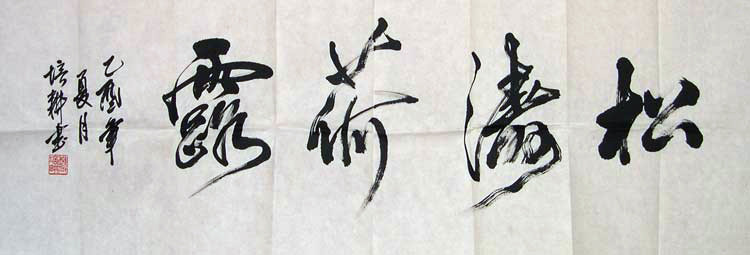 松濤荷露
乙酉年
夏月
培耕書